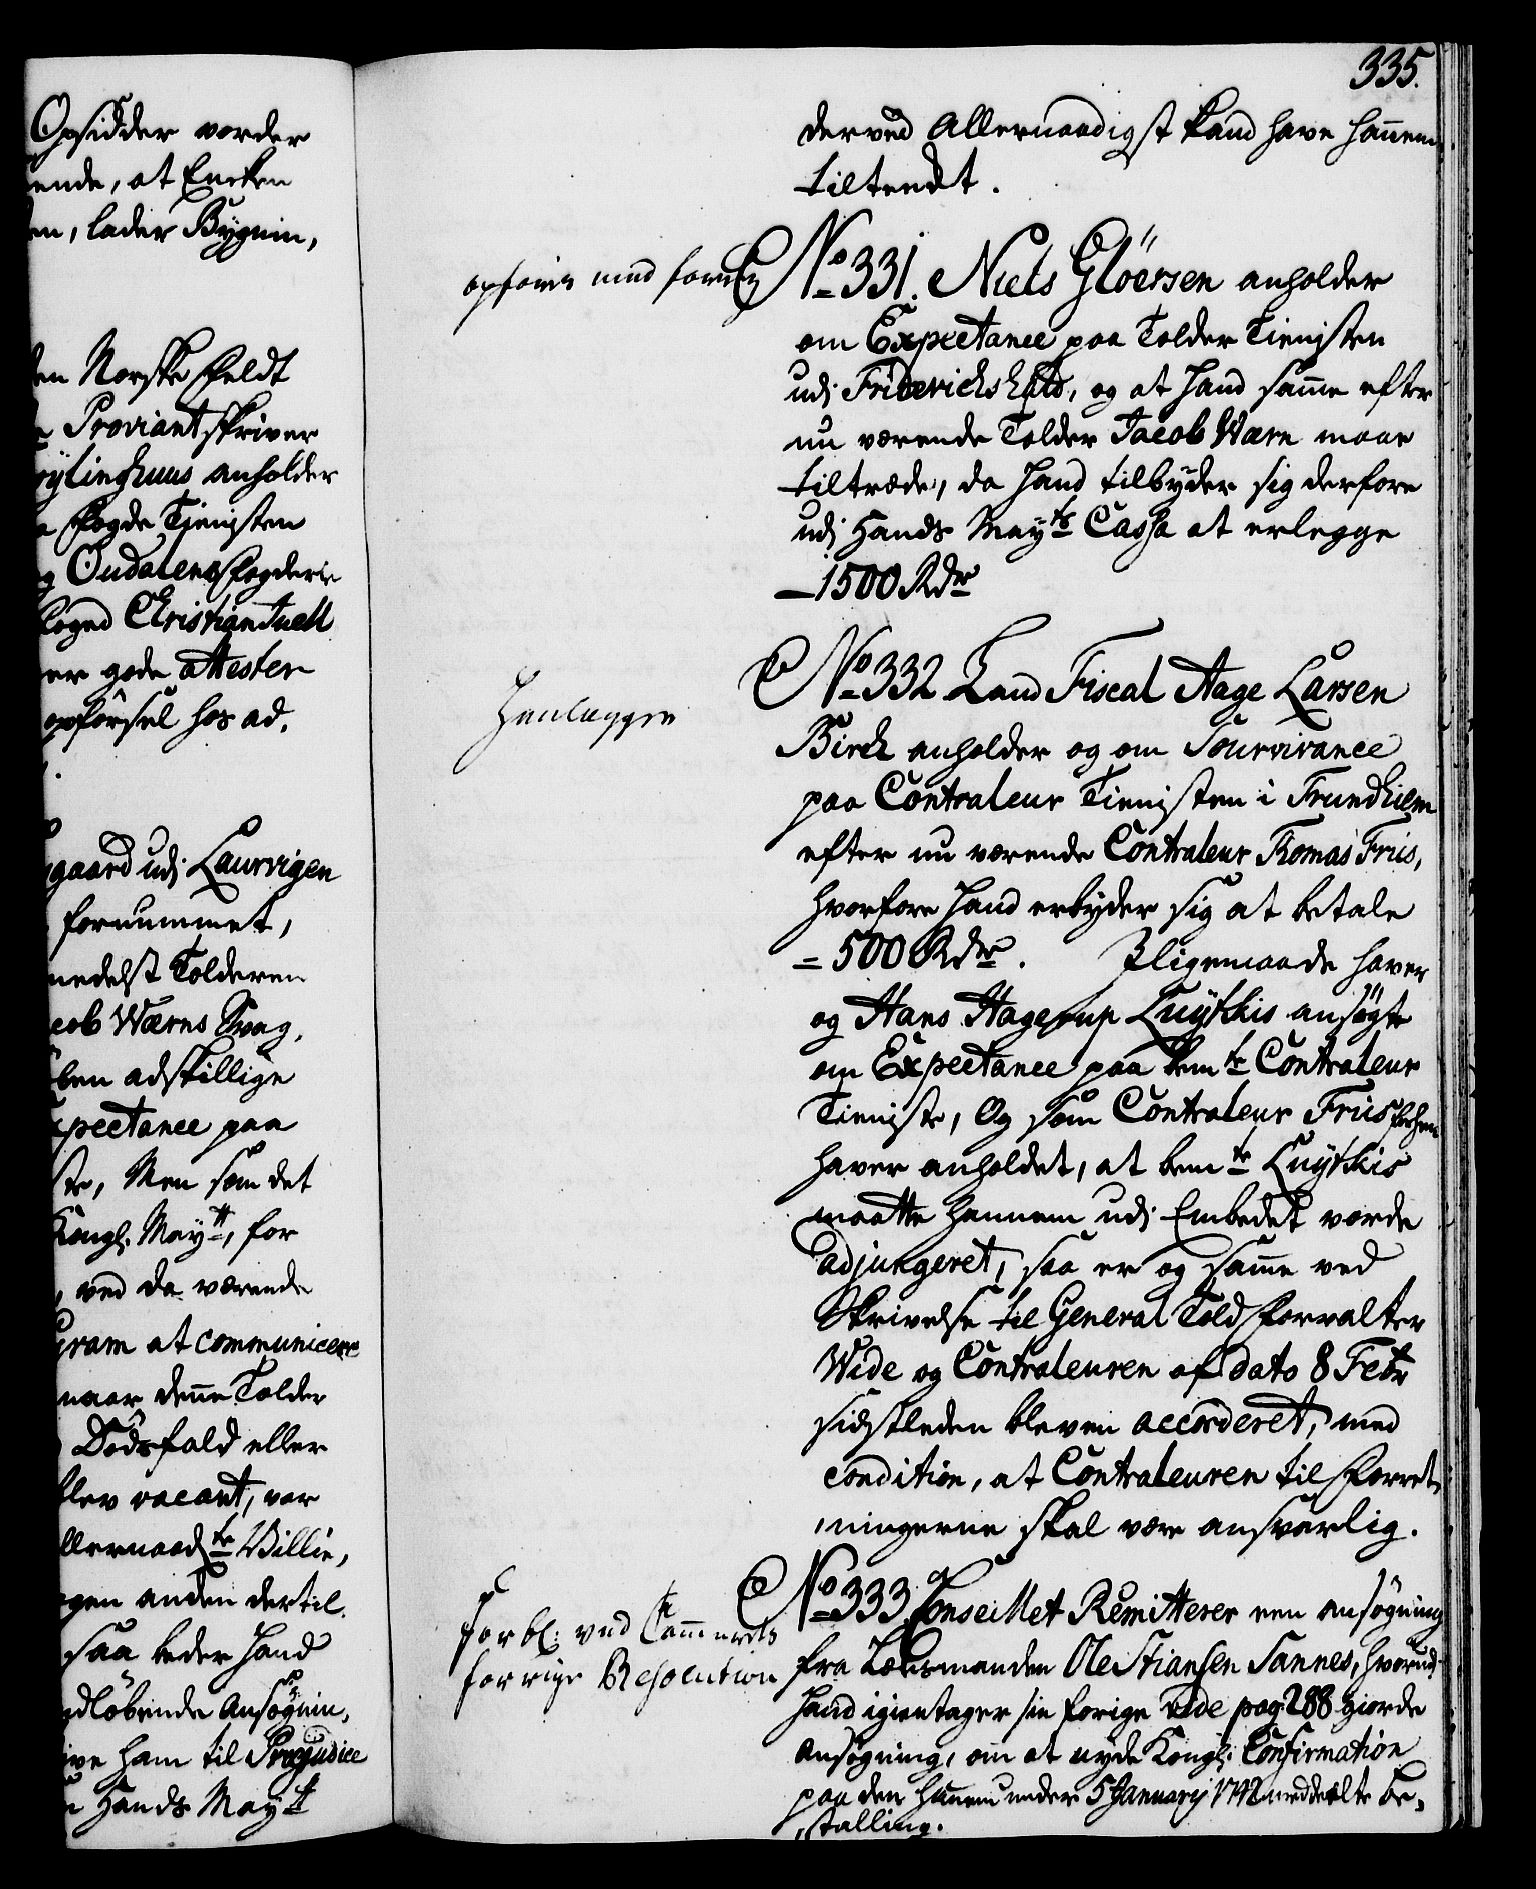 Opsidder vorder
ende, at Encken
en, lader Bygnin,
en Norske Feldt
Proviantskriver
anholder
Fogde Tienisten
Oudalens Fogderie
Foged Christian Juell
er gode attester
opförsel hos ad,
gaard udj Laurvigen
fornummet,
medelst Tolderen
cob Wærns Svag,
ben adskillige
xpectance paa
ste, Men som det
Kongl. Maytt, for
ved da værende
gram at communicere
naar denne Tolder
Dödsfald eller
blev vacant, var
llernaadste Villie,
ogen anden dertil
saa beder hand
dlöbende Ansögnin,
ive ham til Præjudice
Hands Maytt
335.
derved Allernaadigst kand have hannem
tiltendt.
opföris med forrige
No 331. Niels Glöersen anholder
om Expectance paa Tolder Tienisten
udj Friderichshald, og at hand samme efter
nu værende Tolder Jacob Wærn maae
tiltræde, da hand tilbyder sig derfore
udj Hands Mayts Cassa at erlegge
1500 Rdr
Henlegges
No 332 Land Fiscal Aage Larsen
Birch anholder og om Sourvivance
paa Contraleur Tienisten i Trundhiem
efter nu værende Contraleur Thomas Friis,
hvorfore hand erbyder sig at betale
= 500 Rdr. Iligemaade haver
og Hans Hagerup Luytkis ansögt
om Expectance paa bemte Contraleur
Tieniste, Og som Contraleur Friis selv
haver anholdet, at bemte Luytkis
maatte hannem udj Embedet vorde
adjungeret, saa er og samme ved
Skrivelse til General Toldforvalter
Wide og Contraleuren af dato 8 Febr
sidstleden bleven accorderet, med
condition, at Contraleuren til Forret,
ningerne skal være ansvarlig.
forbl: ved Cammerets
forrige Resolution
No 333. Conseillet Remitterer een ansögning
fra Lensmanden Ole Stiansen Sannes, hvorudj
hand igientager sin forige vide pag: 288 giorde
Ansögning, om at nyde Kongl. Confirmation
paa den hannem under 5 January 1742 meddeelte Be,
stalling.